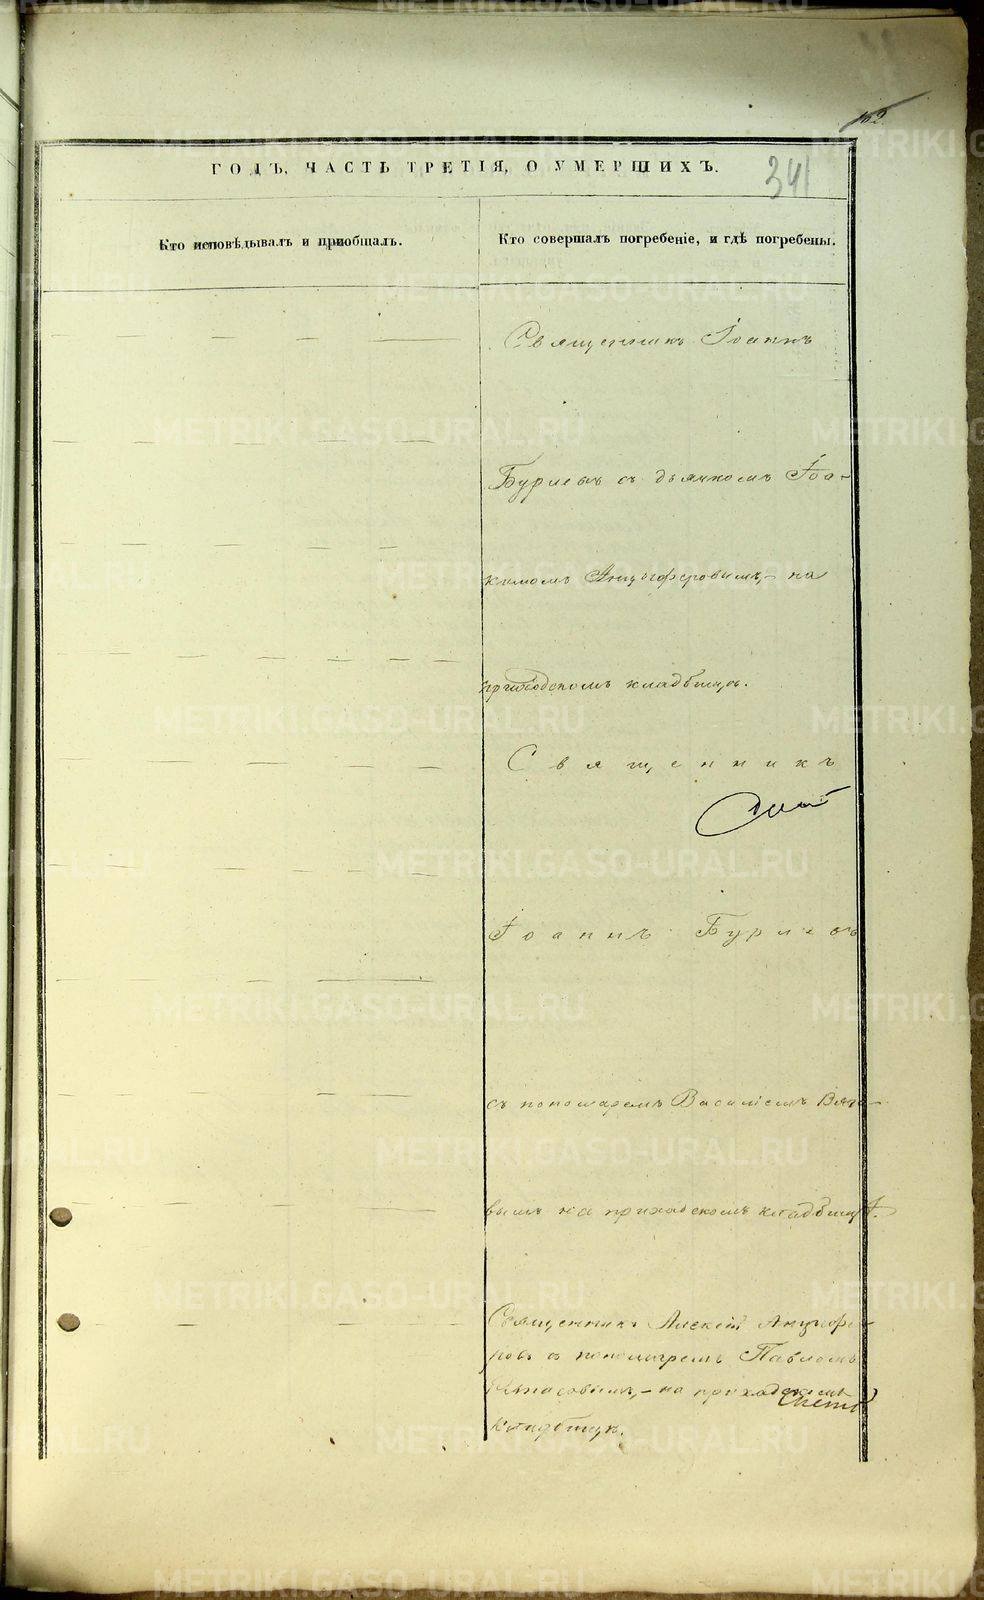 ГОДЪ, ЧАСТЬ ТРЕТІЯ, О УМЕРШИХЪ.
341
Кто исповѣдывалъ и пріобщалъ.
Кто совершалъ погребеніе, и гдѣ погребены.
Священникъ Іоаннъ
Бурлевъ съ дьячкомъ Іоа-
кимомъ Анцыферовымъ, – на
приходскомъ кладбищѣ.
Священникъ
Іоаннъ Бурлевъ
съ пономаремъ Василіемъ
вымъ на приходскомъ кладбищѣ.
Священникъ Алексій Анцыфе-
ровъ съ пономаремъ Павломъ
– на приходскомъ
кладбищѣ.
METRIKI.GASO-URAL.RU